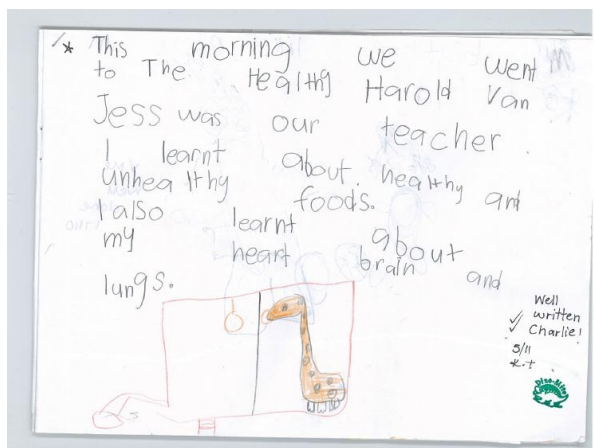 This morning we went
to The Healthy Harold Van
Jess was our teacher.
I learnt about healthy and
unhealthy foods.
I also learnt about
my heart brain and
lungs.
Well
written
Charlie!
5/11
K.T